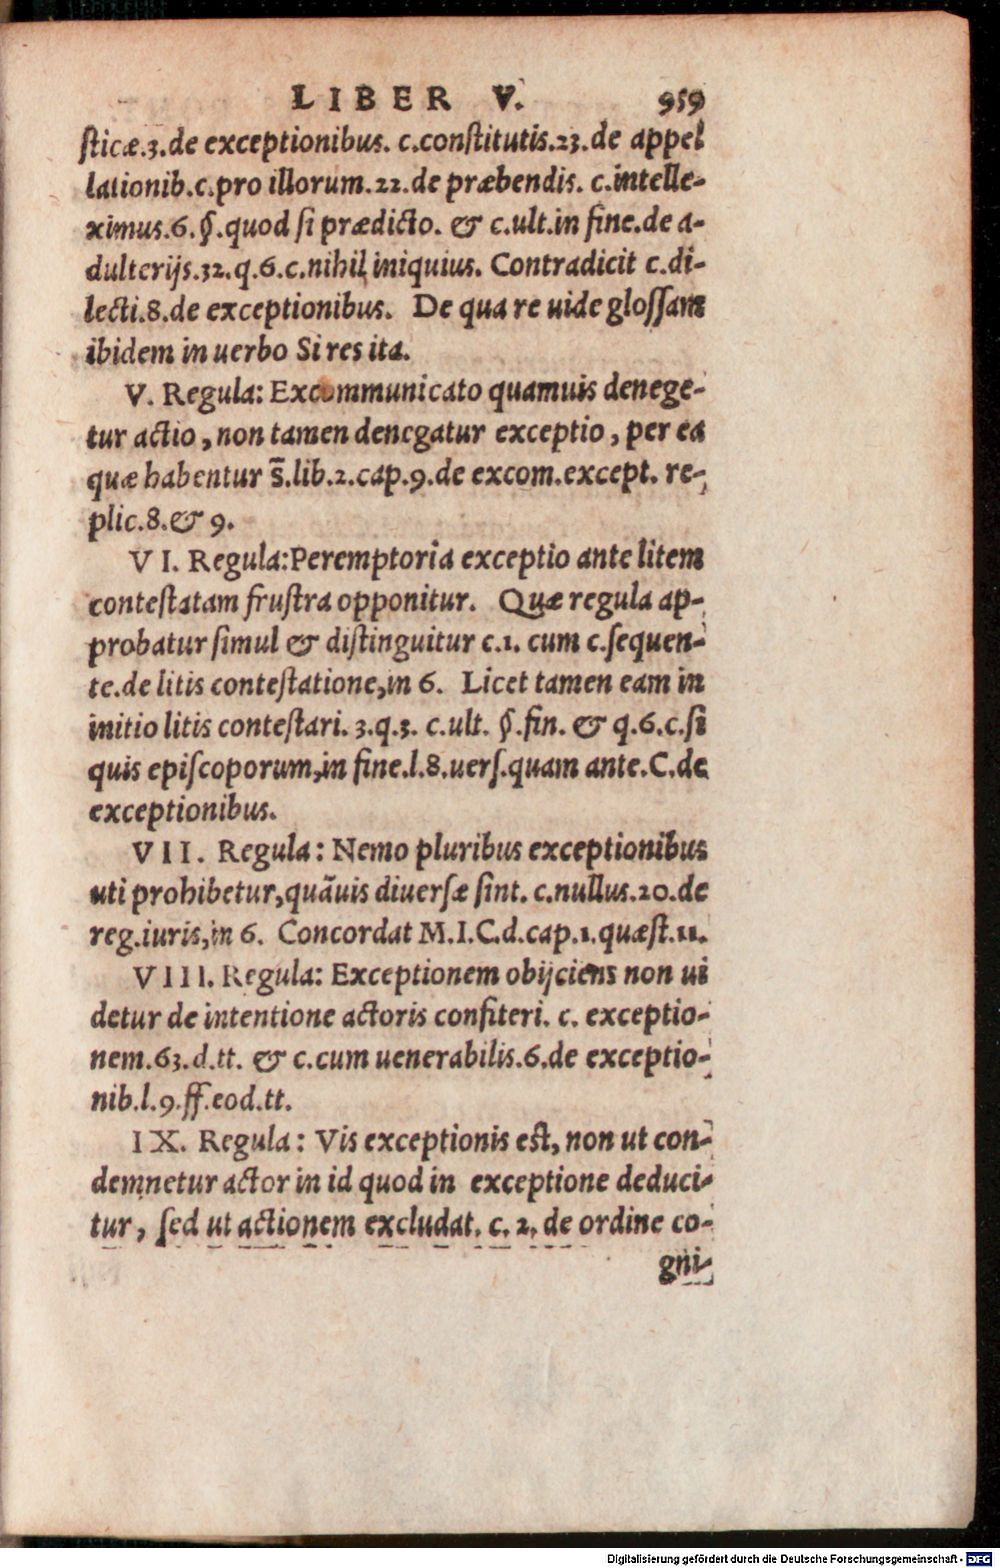 LIBER V. 959
ſticæ.3.de exceptionibus. c.conſtitutis.23.de appel
lationib.c.pro illorum.22.de præbendis. c.intelle-
ximus.6.§.quod ſi prædicto. & c.ult.in fine.de a-
dulterijs.32.q.6.c.nihil iniquius. Contradicit c.di-
lecti.8.de exceptionibus. De qua re uide gloſſam
ibidem in uerbo Si res ita.
V. Regula: Excommunicato quamuis denege-
tur actio, non tamen denegatur exceptio, per ea
quæ habentur s̄.lib.2.cap.9.de excom.except. re-
plic.8.& 9.
VI. Regula:Peremptoria exceptio ante litem
conteſtatam fruſtra opponitur. Quæ regula ap-
probatur ſimul & diſtinguitur c.1. cum c.ſequen-
te.de litis conteſtatione,in 6. Licet tamen eam in
initio litis conteſtari. 3.q.3. c.ult. §.fin. & q.6.c.ſi
quis epiſcoporum,in fine.l.8.uerſ.quam ante.C.de
exceptionibus.
VII. Regula: Nemo pluribus exceptionibus
uti prohibetur,quãuis diuerſæ ſint. c.nullus.20.de
reg.iuris,in 6. Concordat M.I.C.d.cap.1.quæſt.11.
VIII. Regula: Exceptionem obijciens non ui
detur de intentione actoris confiteri. c. exceptio-
nem.63.d.tt. & c.cum uenerabilis.6.de exceptio-
nib.l.9.ff.eod.tt.
IX. Regula: Vis exceptionis eſt, non ut con-
demnetur actor in id quod in exceptione deduci-
tur, ſed ut actionem excludat. c. 2. de ordine co-
gni-
Digitalisierung gefördert durch die Deutsche Forschungsgemeinschaft - DFG